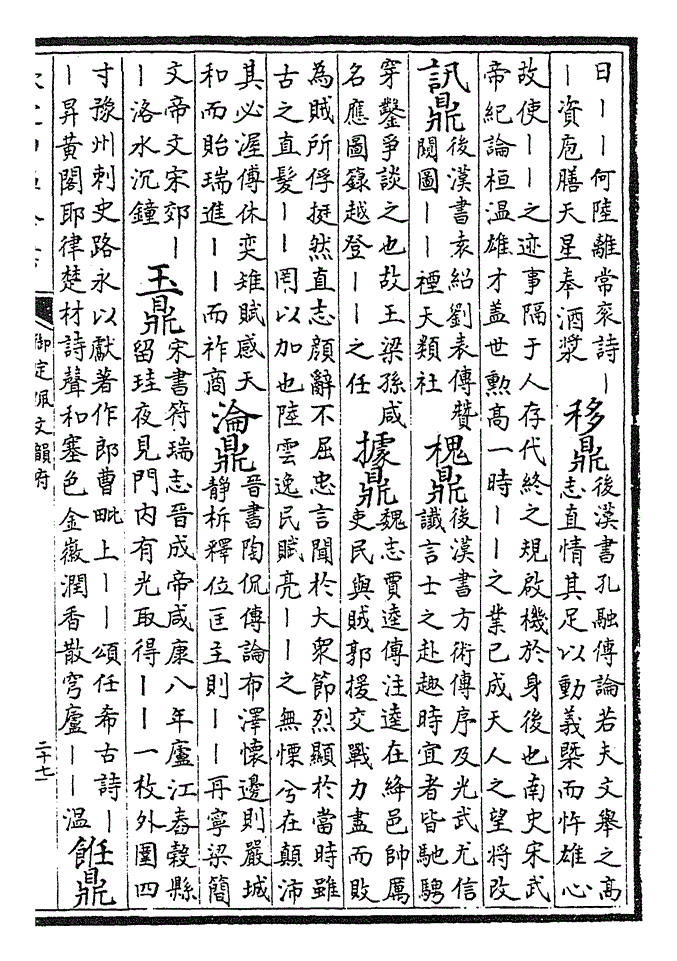 日——何陸離常衮詩—
—資庖膳天星奉酒漿
移鼎
後漢書孔融傳論若夫文舉之高
志直情其足以動義槩而忤雄心
故使——之迹事隔于人存代終之規啟機於身後也南史宋武
帝紀論桓温雄才蓋世勲高一時——之業已成天人之望將改
訊鼎
後漢書袁紹劉表傳贊
闚圖——禋天類社
槐鼎
後漢書方術傳序及光武尤信
讖言士之赴趣時宜者皆馳騁
穿鑿爭談之也故王梁孫咸
名應圖籙越登——之任
據鼎
魏志賈逵傳注逵在絳邑帥厲
吏民與賊郭援交戰力盡而敗
為賊所俘挺然直志顔辭不屈忠言聞於大衆節烈顯於當時雖
古之直髮——罔以加也陸雲逸民賦亮——之無慄兮在顛沛
其必渥傅休奕雉賦感天
和而貽瑞進——而祚商
淪鼎
晉書陶侃傳論布澤懷邊則嚴城
靜柝釋位匡主則——再寧梁簡
文帝文宋郊—
—洛水沉鐘
玉鼎
宋書符瑞志晉成帝咸康八年廬江舂穀縣
留珪夜見門内有光取得——一枚外圍四
寸豫州刺史路永以獻著作郎曹毗上——頌任希古詩—
—昇黃閣耶律楚材詩聲和塞色金徽潤香散穹廬——温
飪鼎
御定佩文韻府
二十七